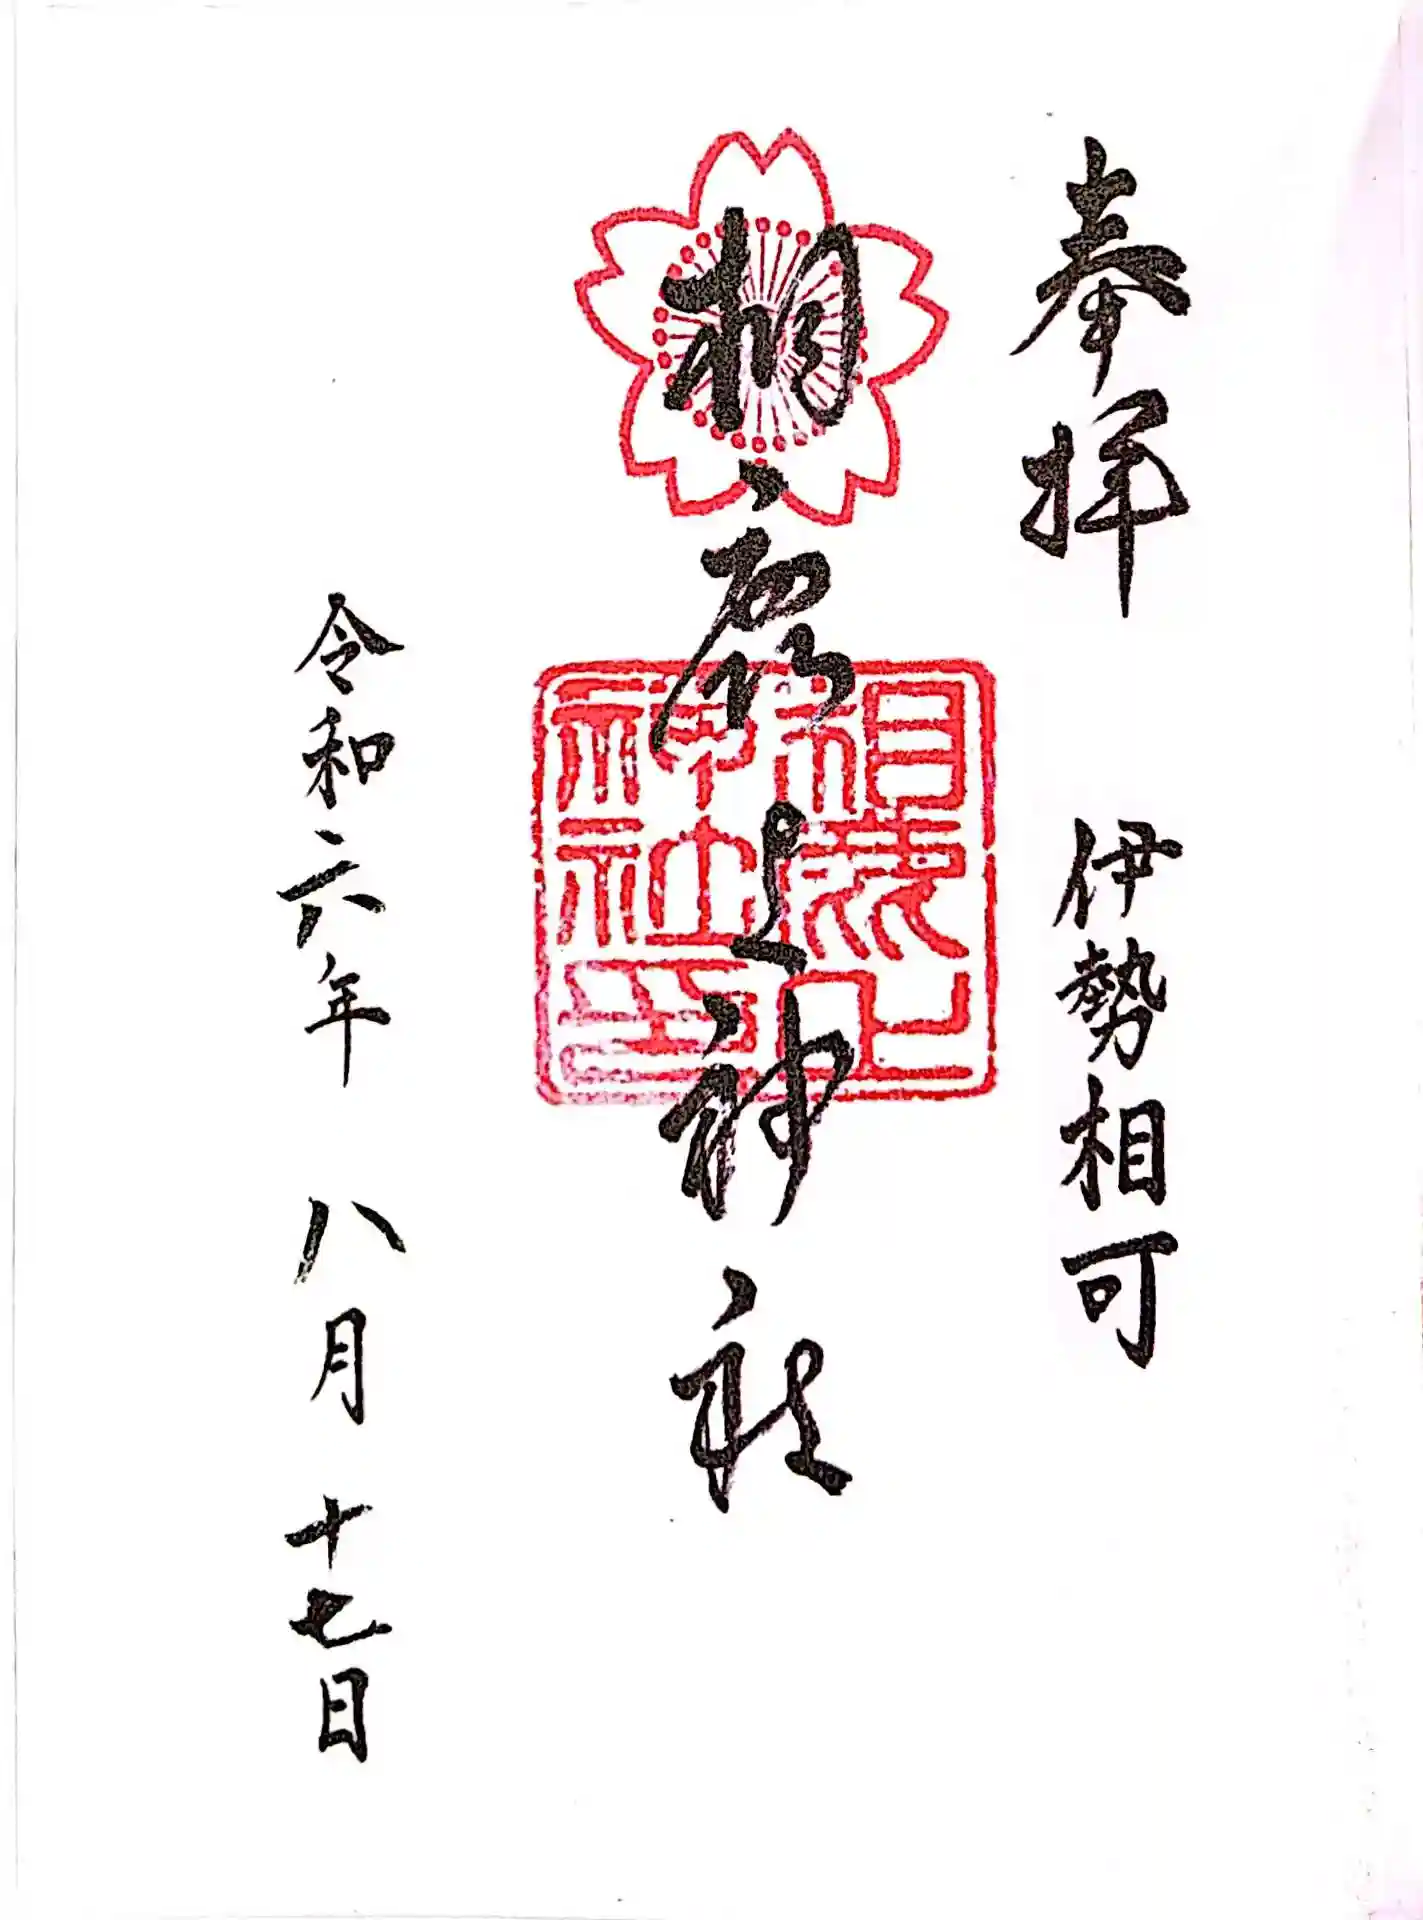 奉拝　伊勢相可
相鹿上神社
相鹿上神社印
令和六年　八月　十七日